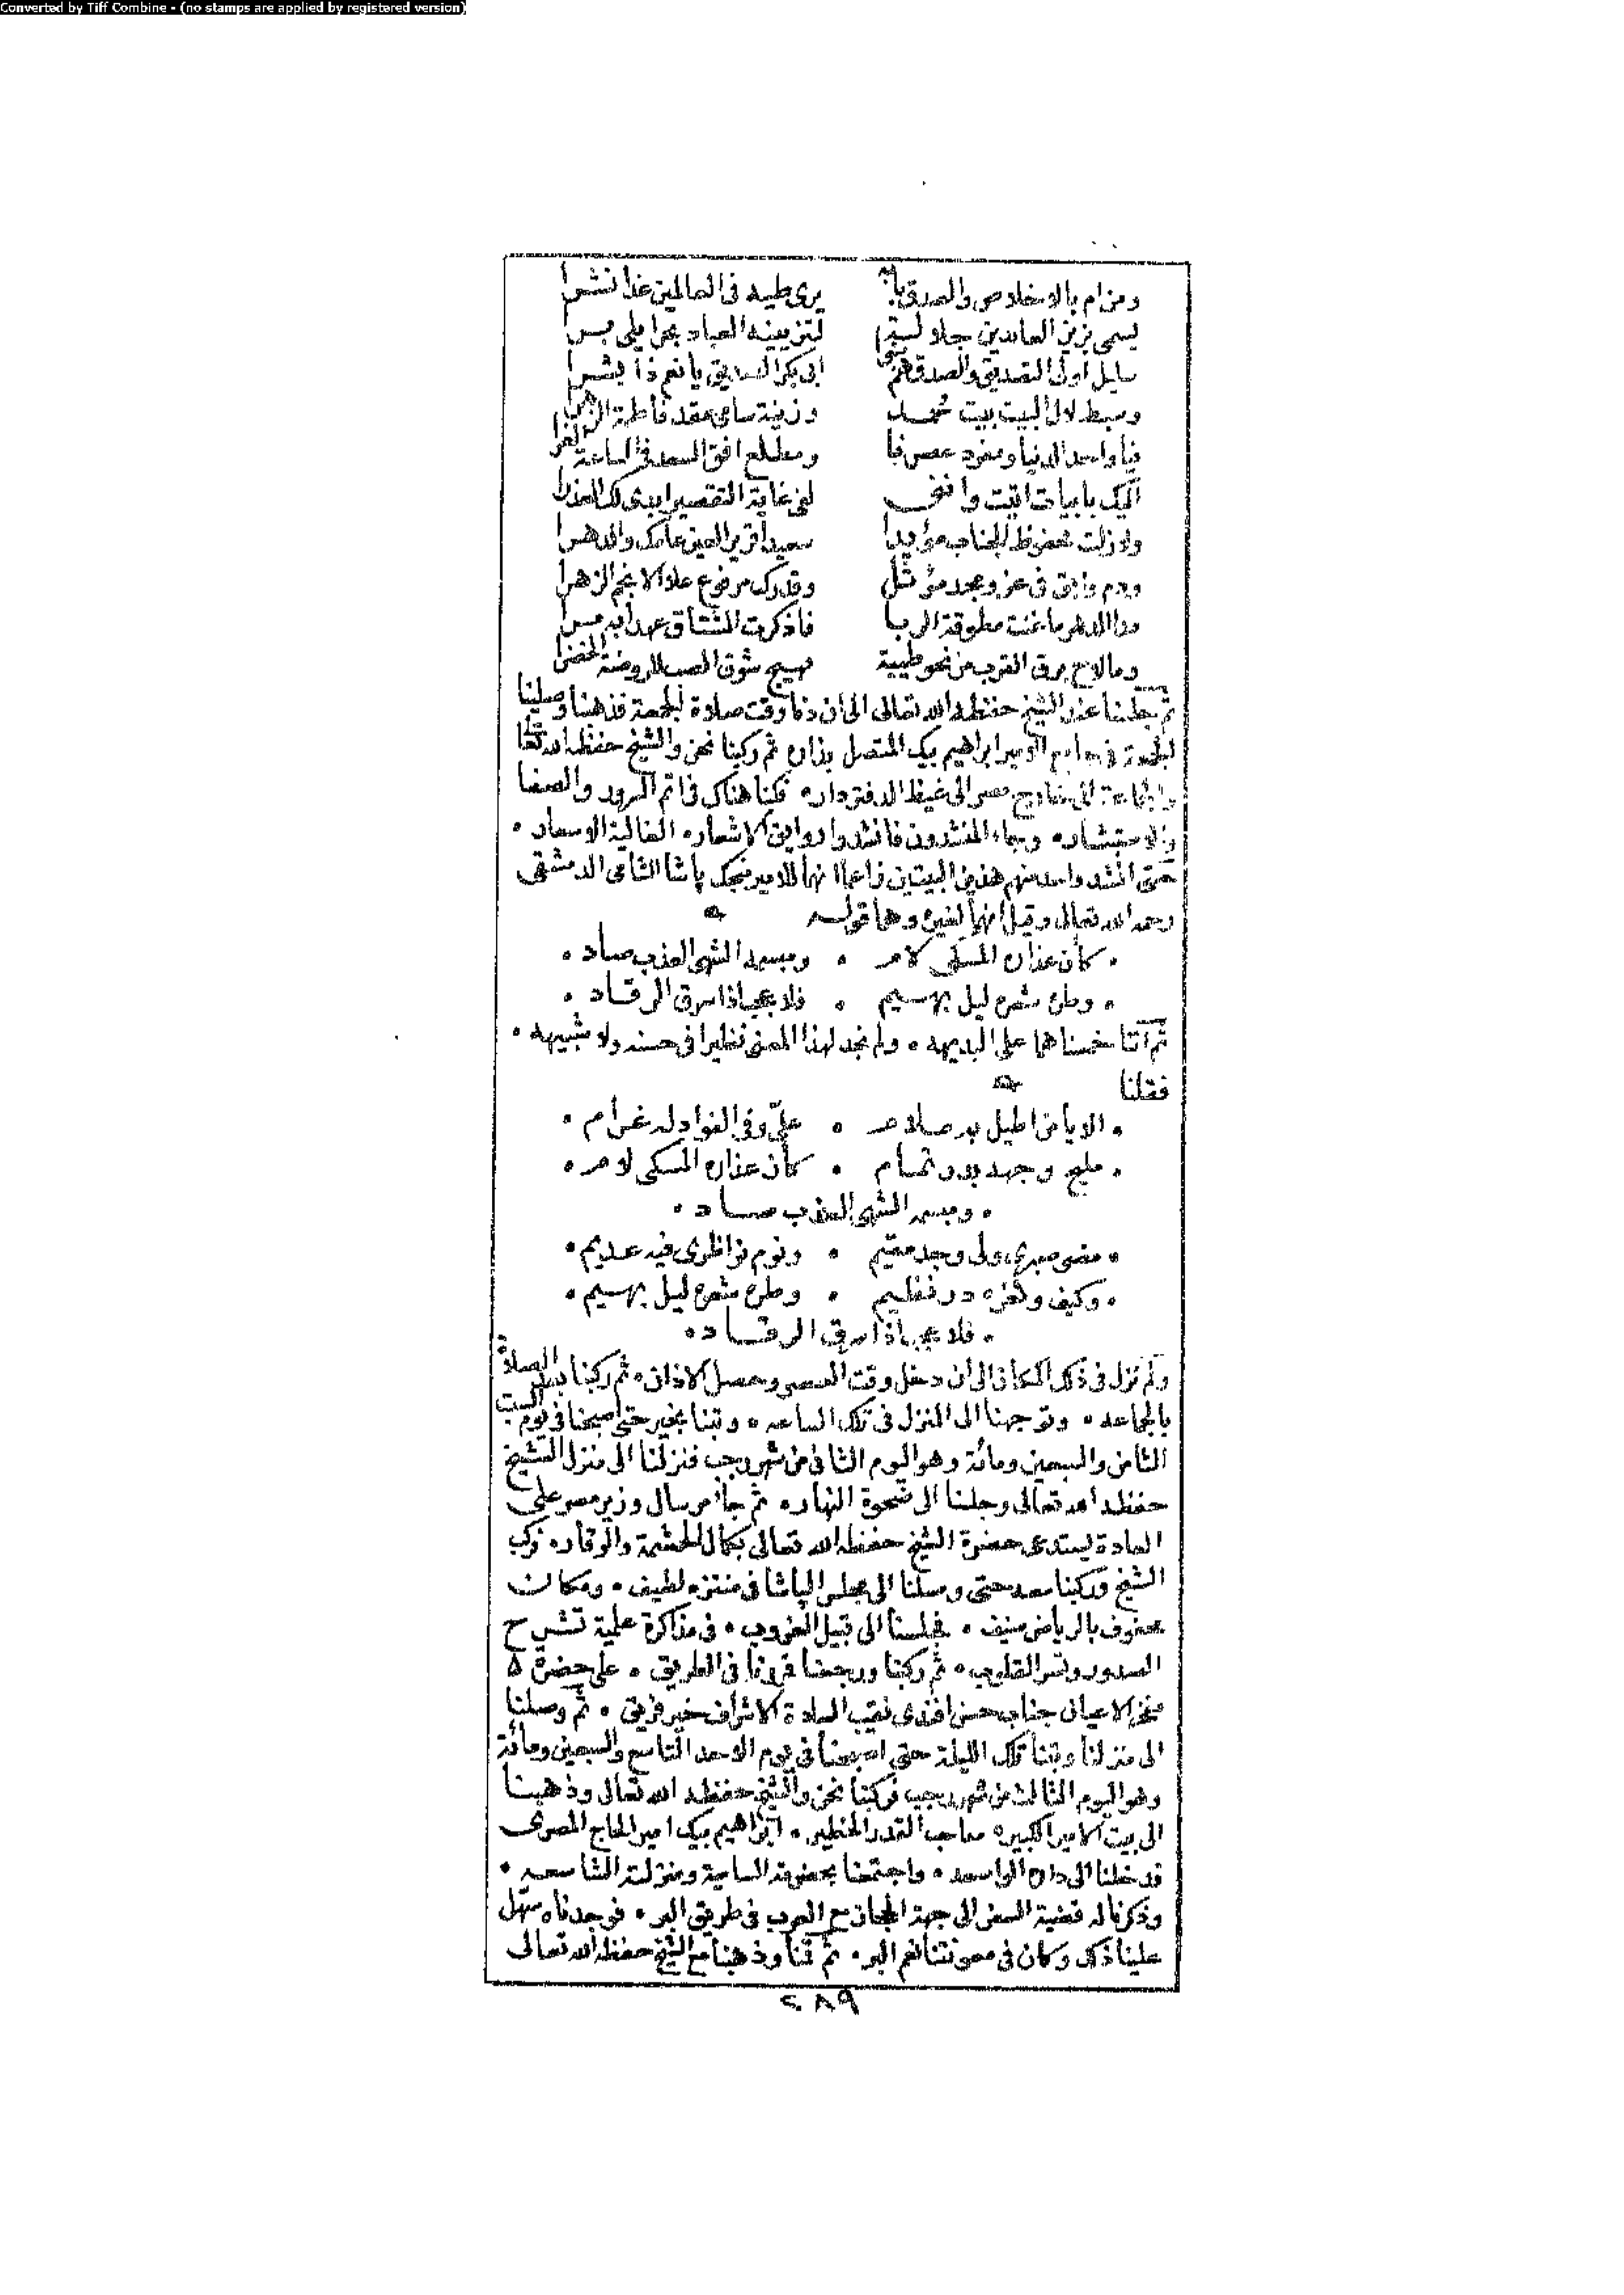 Converted by Tiff Combine - (no stamps are applied by registered version)
ومن ام بالاخلاص والصدق بابه يرى طيه فى العالمين غدا نشرا
يسمى بزين العابدين جلالة لتزيينه العباد
سليل اولى التصديق والصدق ابى بكر الصديق يا نعم ذا بشرا
وسبط لال البيت بيت محمد وزينة سامى عقد فاطمة الزهرا
فيا واحد الدنيا ومفرد عصرنا ومطلع افق السعد فى الساعة الغرا
اليك بابيات اتيت واننى لفى غاية التقصير ابدى لك العذرا
ولا زلت محفوظ الجناب مؤيدا سعيدا قرير العين عامك والدهرا
ودم وابق فى عز ومجد مؤثل وقدرك مرفوع علا الانجم الزهرا
مدا الدهر ما غنت مطوقة الربا فاذكرت المشتاق عهدا به مرا
وما لاح برق القرب من نحو طيبة فهيج شوق الصب للروضة الخضرا
ثم جلسنا عند الشيخ حفظه الله تعالى الى ان دنا وقت صلاة الجمعة فذهبنا وصلينا
الجمعة فى جامع الامير ابراهيم بيك المتصل بداره ثم ركبنا نحن والشيخ حفظه الله تعالى
والجماعة الى خارج مصر الى غيط الدفتردار، فكنا هناك فى اتم السرور والصفا
والاستبشار، وجاء المنشدون فانشدوا روايق الاشعار، الغالية الاسعار.
حتى انشد واحد منهم هذين البيتين زاعما انهما للامير منجك باشا الشامى الدمشقى
رحمه الله تعالى وقيل انهما لغيره وهما قوله
. كأن عذاره المسكى لام . ومبسمه الشهى العذب صاد .
. وطرة شعره ليل بهيم . فلا عجب اذا سرق الرقاد .
ثم اننا خمسناهما على البديهه . ولم نجد لهذا المعنى نظيرا فى حسنه ولا شبيهه .
فقلنا
. الا يا من اطيل به صلام . علىّ وفى الفواد له غرام .
. مليح وجهه بدر تمام . كأن عذاره المسكى لام .
. ومبسمه الشهى العذب صاد .
. مضى صبرى ولى وجد مقيم . ونوم نواظرى فيه عديم .
. وكيف وثغره در نظيم . وطرة شعره ليل بهيم .
. فلا عجب اذا سرق الرقاد .
ولم نزل فى ذلك المكان الى ان دخل وقت العصر وحصل الاذان، ثم ركبنا بعد الصلاة
بالجماعه . وتوجهنا الى المنزل فى تلك الساعه . وبتنا بخير حتى اصبحنا فى يوم السبت
الثامن والسبعين ومائة وهو اليوم الثانى من شهر رجب فنزلنا الى منزل الشيخ
حفظه الله تعالى وجلسنا الى ضحوة النهار. ثم جاء مرسال وزير مصر على
العادة يستدعى حضرة الشيخ حفظه الله تعالى بكمال الحشمة والوقار. فركب
الشيخ وركبنا معه حتى وصلنا الى مجلس الباشا فى منتزه لطيف . ومكان
محفوف بالرياض منيف . فجلسنا الى قبيل الغروب . فى مذاكرة علمية تشرح
الصدور وتسر القلوب . ثم ركبنا ورجعنا فمررنا فى الطريق . على حضرة
مفخر الاعيان جناب حسن افندى نقيب السادة الاشراف خير فريق . ثم وصلنا
الى منزلنا وبتنا تلك الليلة حتى اصبحنا فى يوم الاحد التاسع والسبعين ومائة
وهو اليوم الثالث من شهر رجب فركبنا نحن والشيخ حفظه الله تعالى وذهبنا
الى بيت الامير الكبير، صاحب القدر الخطير . ابراهيم بيك امير الحاج المصرى
فدخلنا الى داره الواسعه . واجتمعنا بحضرته السامية ومنزلته الشاسعه .
وذكرنا له قضية السفر الى جهة الحجاز مع العرب فى طريق البر . فوجدناه سهّل
علينا ذلك وكان فى معونتنا نعم البر . ثم قمنا وذهبنا مع الشيخ حفظه الله تعالى
٢٨٩